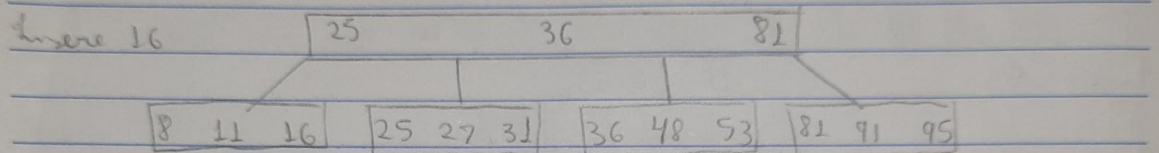 Insere 16 25 36 81
8 11 16 25 27 31 36 48 53 81 91 95